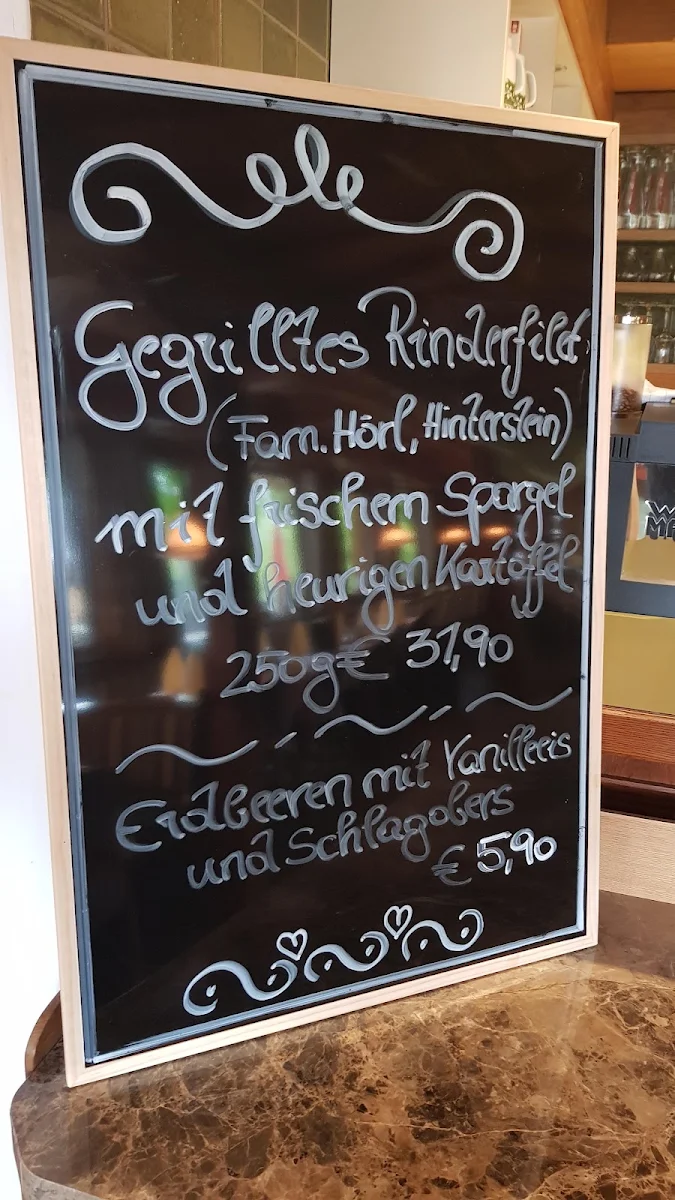 Gegrilltes Rinderfilet
(Fam. Hörl, Hinterstein)
mit frischem Spargel
und heurigen Kartoffel
250g € 31,90
Erdbeeren mit Vanilleeis
und Schlagobers
€ 5,90